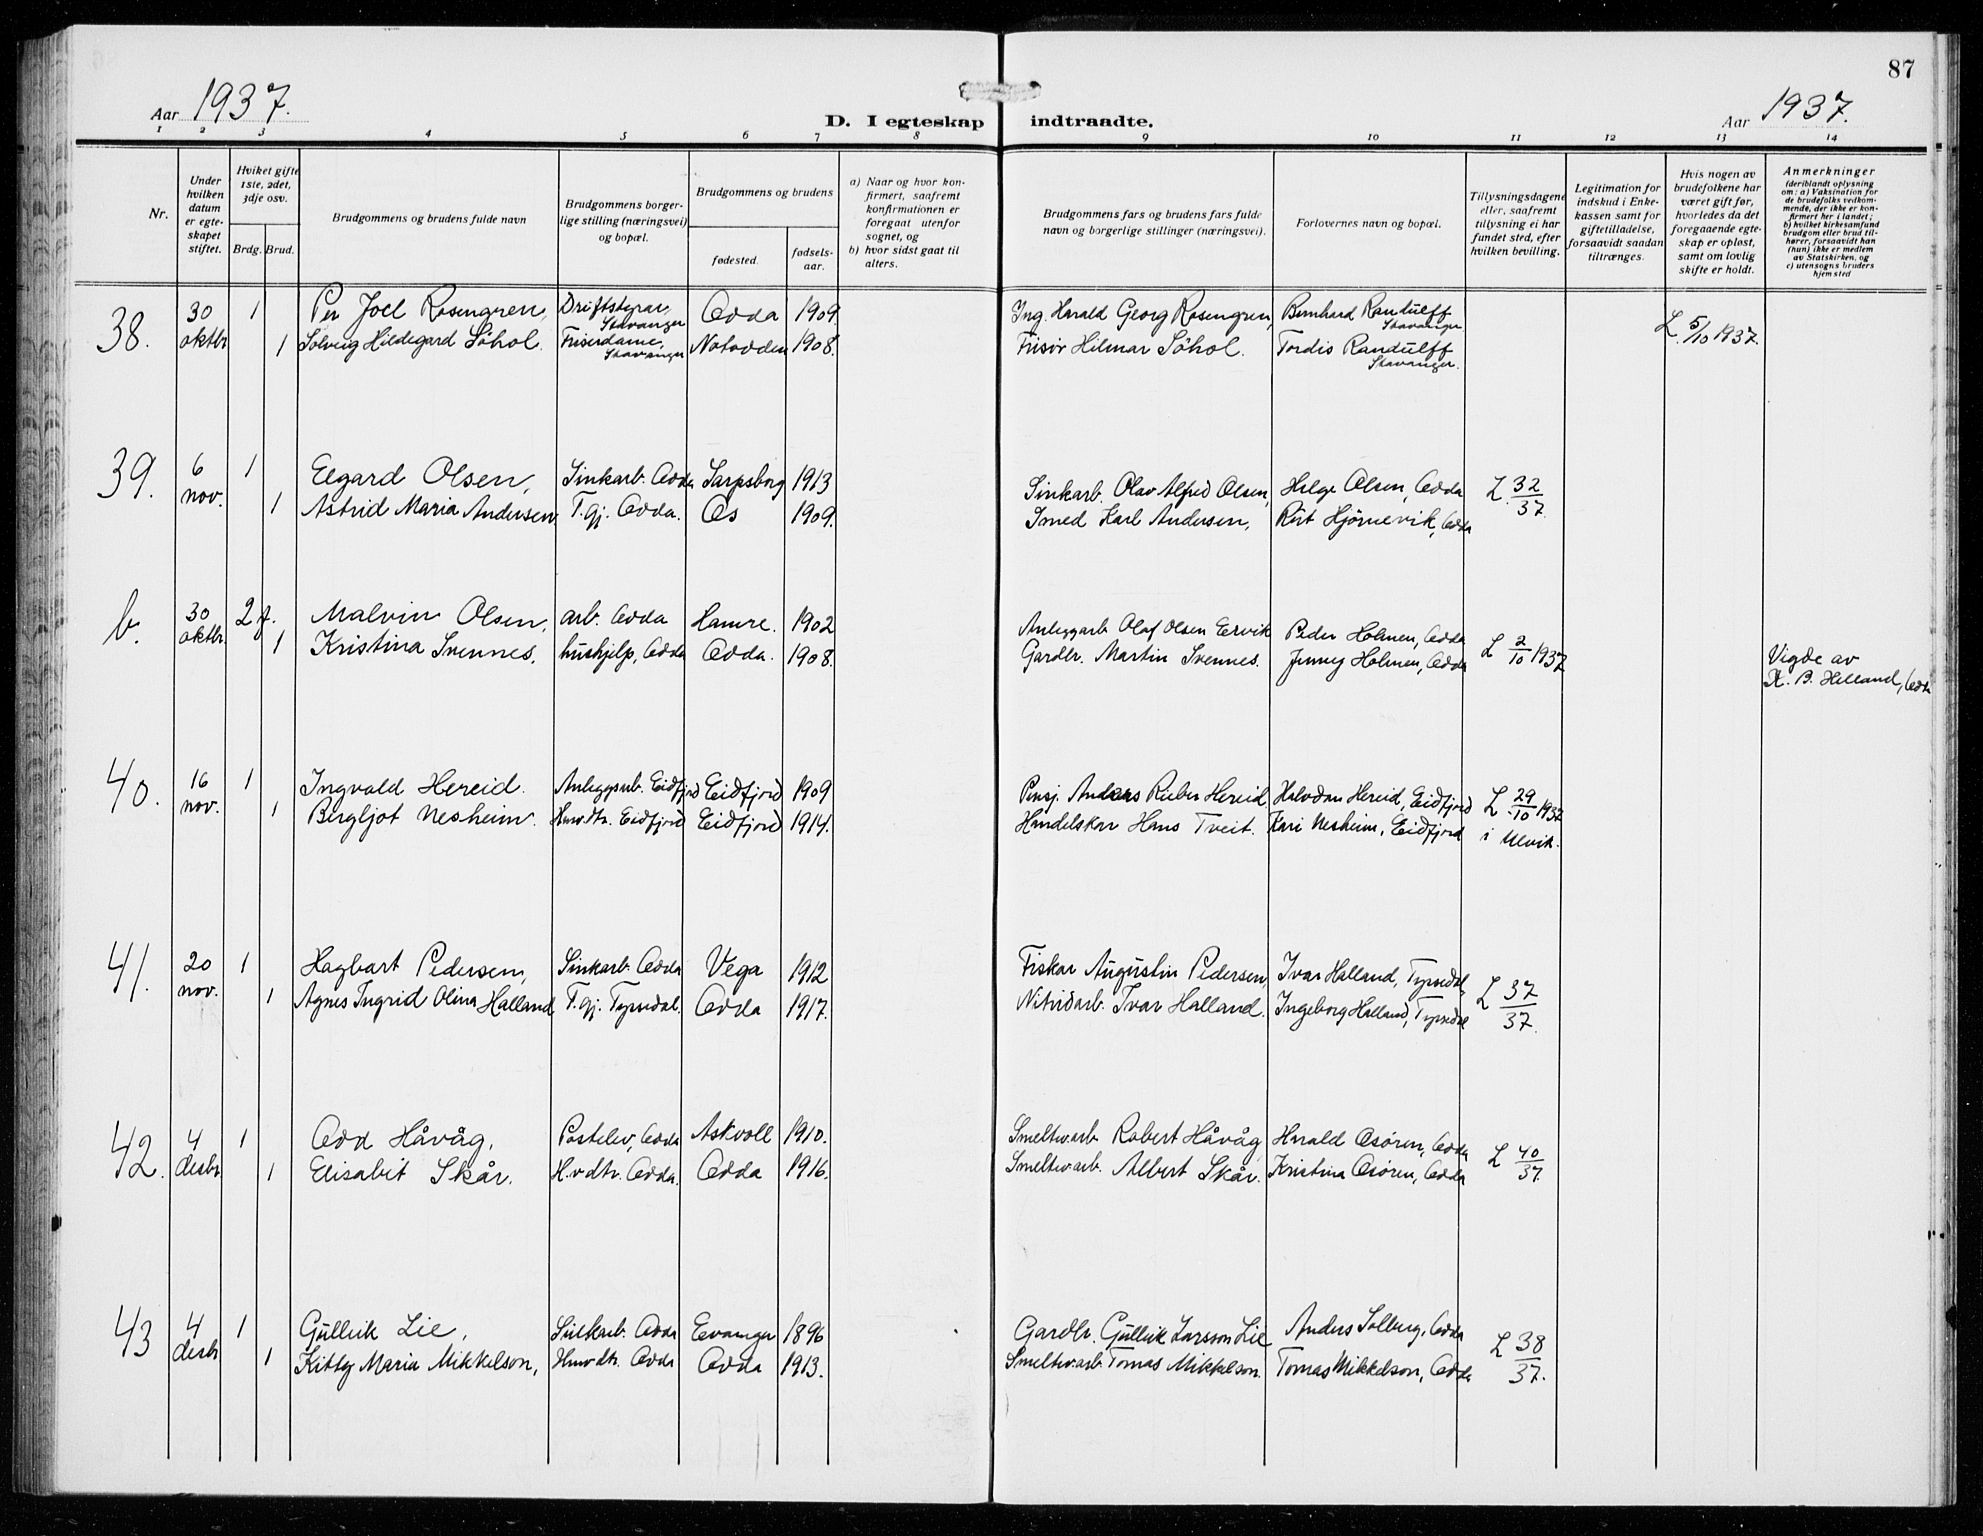 87
Aar 1937.
D. I egteskap indtraadte.
Aar 1937.
1 2 3 4 5 6 7 8 9 10 11 12 13 14
Nr.
Under hvilken datum er egteskapet stiftet.
Hviket gifte 1ste, 2det, 3dje osv.
Brdg. Brud.
Brudgommens og brudens fulde navn
Brudgommens borgerlige stilling (næringsvei) og bopæl.
Brudgommens og brudens
fødested.
fødselsaar.
a) Naar og hvor konfirmert, saafremt konfirmationen er foregaat utenfor sognet, og
b) hvor sidst gaat til alters.
Brudgommens fars og brudens fars fulde navn og borgerlige stillinger (næringsvei).
Forlovernes navn og bopæl.
Tillysningsdagene eller, saafremt tillysning ei har fundet sted, efter hvilken bevilling.
Legitimation for indskud i Enkekassen samt for giftetilladelse, forsaavidt saadan tiltrænges.
Hvis nogen av brudefolkene har været gift før, hvorledes da det foregaaende egteskap er opløst, samt om lovlig skifte er holdt.
Anmerkninger
(deriblandt oplysning om: a) Vaksination for de brudefolks vedkommende, der ikke er konfirmert her i landet; b) hvilket kirkesamfund brudgom eller brud tilhører, forsaavidt han (hun) ikke er medlem av Statskirken, og c) utensogns bruders hjemsted
38. 30 oktbr 1 Per Joel Rosengren, Driftsstyrar, Stavanger Odda 1909. Ing. Harald Georg Rosengren, Bernhard Randulff Stavanger L. 5/10 1937.
1 Solveig Hildegard Söhol. Friserdame, Stavanger Notodden 1908. Frisör Hilmar Söhol. Tordis Randulff Stavanger.
39. 6 nov. 1 Elgard Olsen, Sinkarb. Odda Sarpsborg 1913 Sinkarb. Olav Alfred Olsen, Helge Olsen, Odda L. 32/37.
1 Astrid Maria Andersen T.gj. Odda. Os 1909. Smed Karl Andersen, Rut Hjörnevik, Odda
b. 30 oktbr. 2 f. Malvin Olsen, arb. Odda Hamre. 1902 Anleggarb. Olaf Olsen Eervik Peder Holmen, Odda L 2/10 1937
1 Kristina Svennes, hushjelp, Odda Odda. 1908. Gardbr. Martin Svennes. Jenny Holmen, Odda
Vigde av
K. B. Helland, Odda
40. 16 nov. 1 Ingvald Hereid. Anleggsarb. Eidfjord Eidfjord 1909 Pensj. Anders Rieber Hereid Halvdan Hereid, Eidfjord L 29/10 1937
1 Bergljot Nesheim. Husdtr. Eidfjord Eidfjord 1914. Handelskar Hans Tveit. Kari Nesheim, Eidfjord i Ulvik.
41. 20 nov. 1 Hagbart Pedersen, Sinkarb. Odda Vega 1912 Fiskar Augustin Pedersen, Ivar Halland, Tyssedal, L 37/37.
1 Agnes Ingrid Olina Halland T.gj. Tyssedal. Odda 1917. Nitridarb. Ivar Halland. Ingeborg Halland, Tyssedal
42. 4 desbr 1 Odd Håvåg, Postelev, Odda Askvoll 1910. Smeltv.arb. Robert Håvåg, Harald Osören, Odda L 40/37.
1 Elisabit Skår. H.vdtr. Odda. Odda 1916. Smeltv.arb. Albert Skår. Kristina Osören, Odda
43 4 desbr 1 Gullik Lie, Sinkarb. Odda Evanger 1896 Gardbr. Gullik Larsson Lie Anders Solberg, Odda L 38/37.
1 Kitty Maria Mikkelson, Husdtr. Odda Odda 1913. Smeltv.arb. Tomas Mikkelson. Tomas Mikkelson, Odda